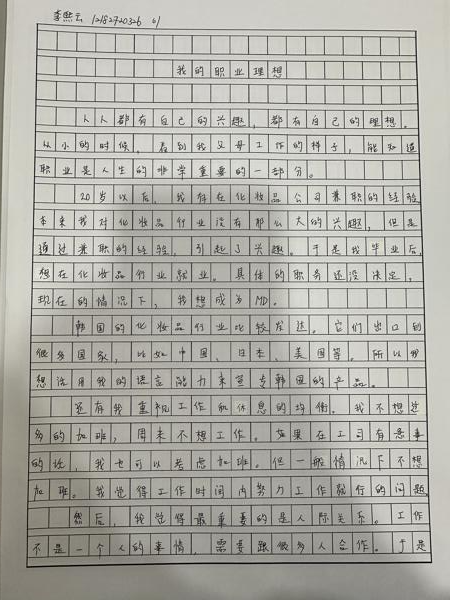 李熙云 12182720326 01
我的职业理想
人人都有自己的兴趣，都有自己的理想。
从小的时候，看到我父母工作的样子，能知道
职业是人生的非常重要的一部分。
20岁以后，我存在化妆品公司兼职的经验
本来我对化妆品行业没有那么大的兴趣，但是
通过兼职的经验，引起了兴趣。于是我毕业后，
想在化妆品行业就业。具体的职务还没决定，
现在的情况下，我想成为MD。
韩国的化妆品行业比较发达。它们出口到
很多国家，比如中国、日本、美国等。所以我
想活用我的语言能力来宣专韩国的产品。
还有我重视工作和休息的均衡。我不想过
多的加班，周末不想工作。如果在工司有急事
的话，我也可以考虑加班。但一般情况下不想
加班。我觉得工作时间内努力工作就行的问题
然后，我觉得最重要的是人际关系。工作
不是一个人的事情，需要跟很多人合作。于是